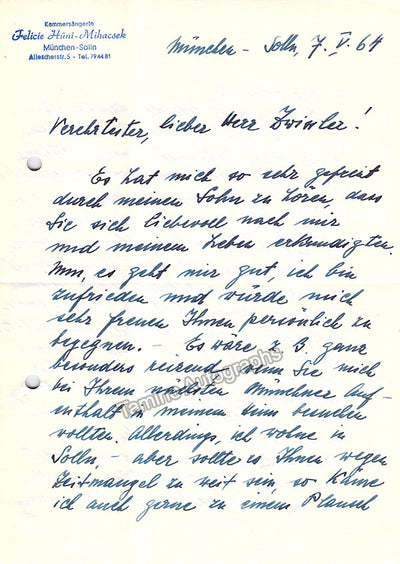 Kammersängerin
Felicie Hüni-Mihacsek
München-Solln
Allescherstr. 5 - Tel. 79 44 81
München - Solln, 7. V. 64
Verehrtester, lieber Herr !
Es hat mich so sehr gefreut
durch meinen Sohn zu hören, dass
Sie sich liebevoll nach mir
und meinem Leben erkundigten.
Nun, es geht mir gut, ich bin
zufrieden und würde mich
sehr freuen Ihnen persönlich zu
begegnen. – Es wäre z. B. ganz
besonders reizend, wenn Sie mich
bei Ihrem nächsten Münchner Auf-
enthalt in meinem besuchen
wollten. Allerdings, ich wohne in
Solln, – aber sollte es Ihnen wegen
Zeitmangel zu weit sein, so käme
ich auch gerne zu einem Plausch
Tamino Autographs